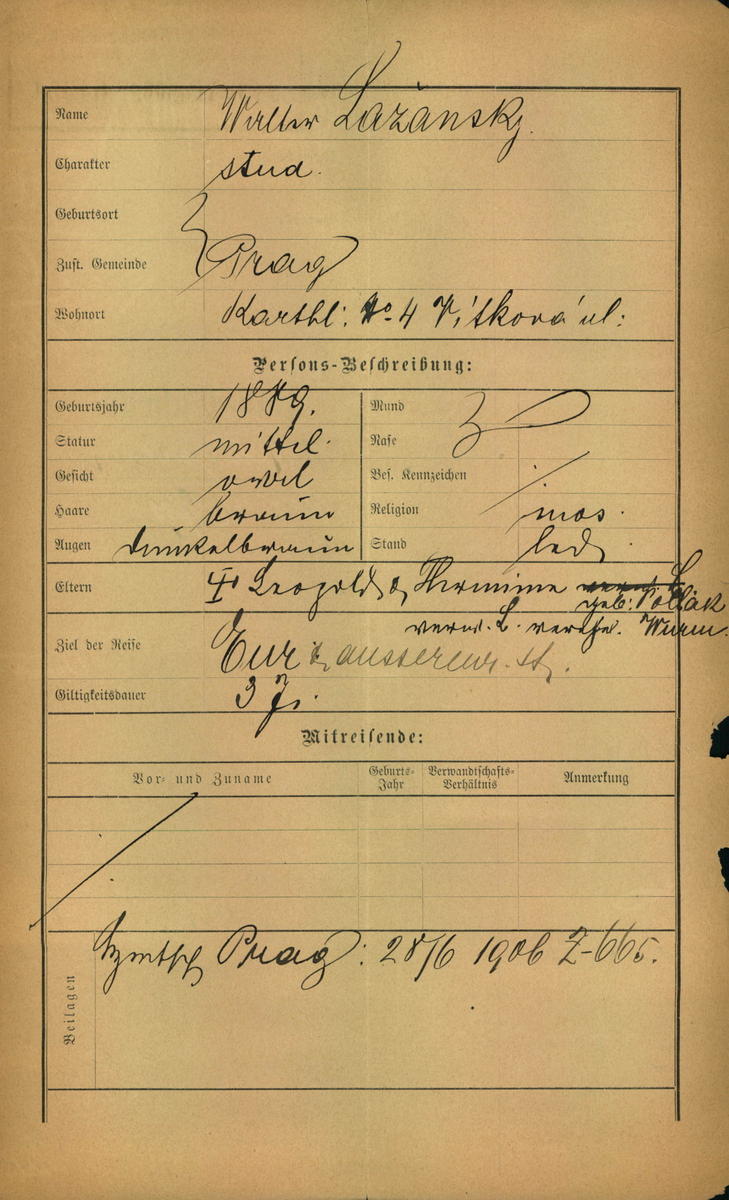 Name Walter Lažanský.
Charakter stud.
Geburtsort
Zust. Gemeinde Prag
Wohnort Karthl: No 4 Vítkova ul:
Persons-Beschreibung:
Geburtsjahr 1889. Mund
Statur mittel. Nase
Gesicht oval Bes. Kennzeichen
Haare braun Religion mos.
Augen dunkelbraun Stand led.
Eltern Leopold & Hermine geb: Pollak
verw. L. vereh. Wurm.
Ziel der Reise Eur & aussereur. St.
Giltigkeitsdauer 3 J.
Mitreisende:
Vor- und Zuname Geburts-Jahr Verwandtschafts-Verhältnis Anmerkung
Beilagen Prag: 28/6 1906 Z-665.